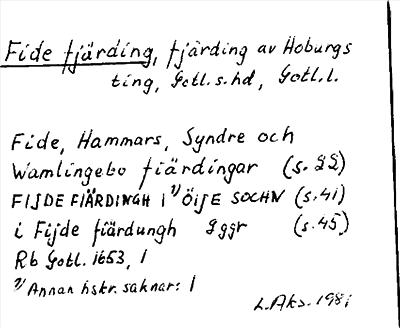 Fide fjärding, fjärding av Hoburgs
ting, Gotl. s. hd, Gotl. l.
Fide, Hammars, Syndre och
Wamlingebo fiärdingar (s. 22)
FIJDE FIÄRDINGH I ¹⁾ ÖIJE SOCHN (s. 41)
i Fijde fiärdungh 2ggr (s. 45)
Rb Gotl. 1653, 1
¹⁾ Annan hskr. saknar: I
L. Aks. 1981